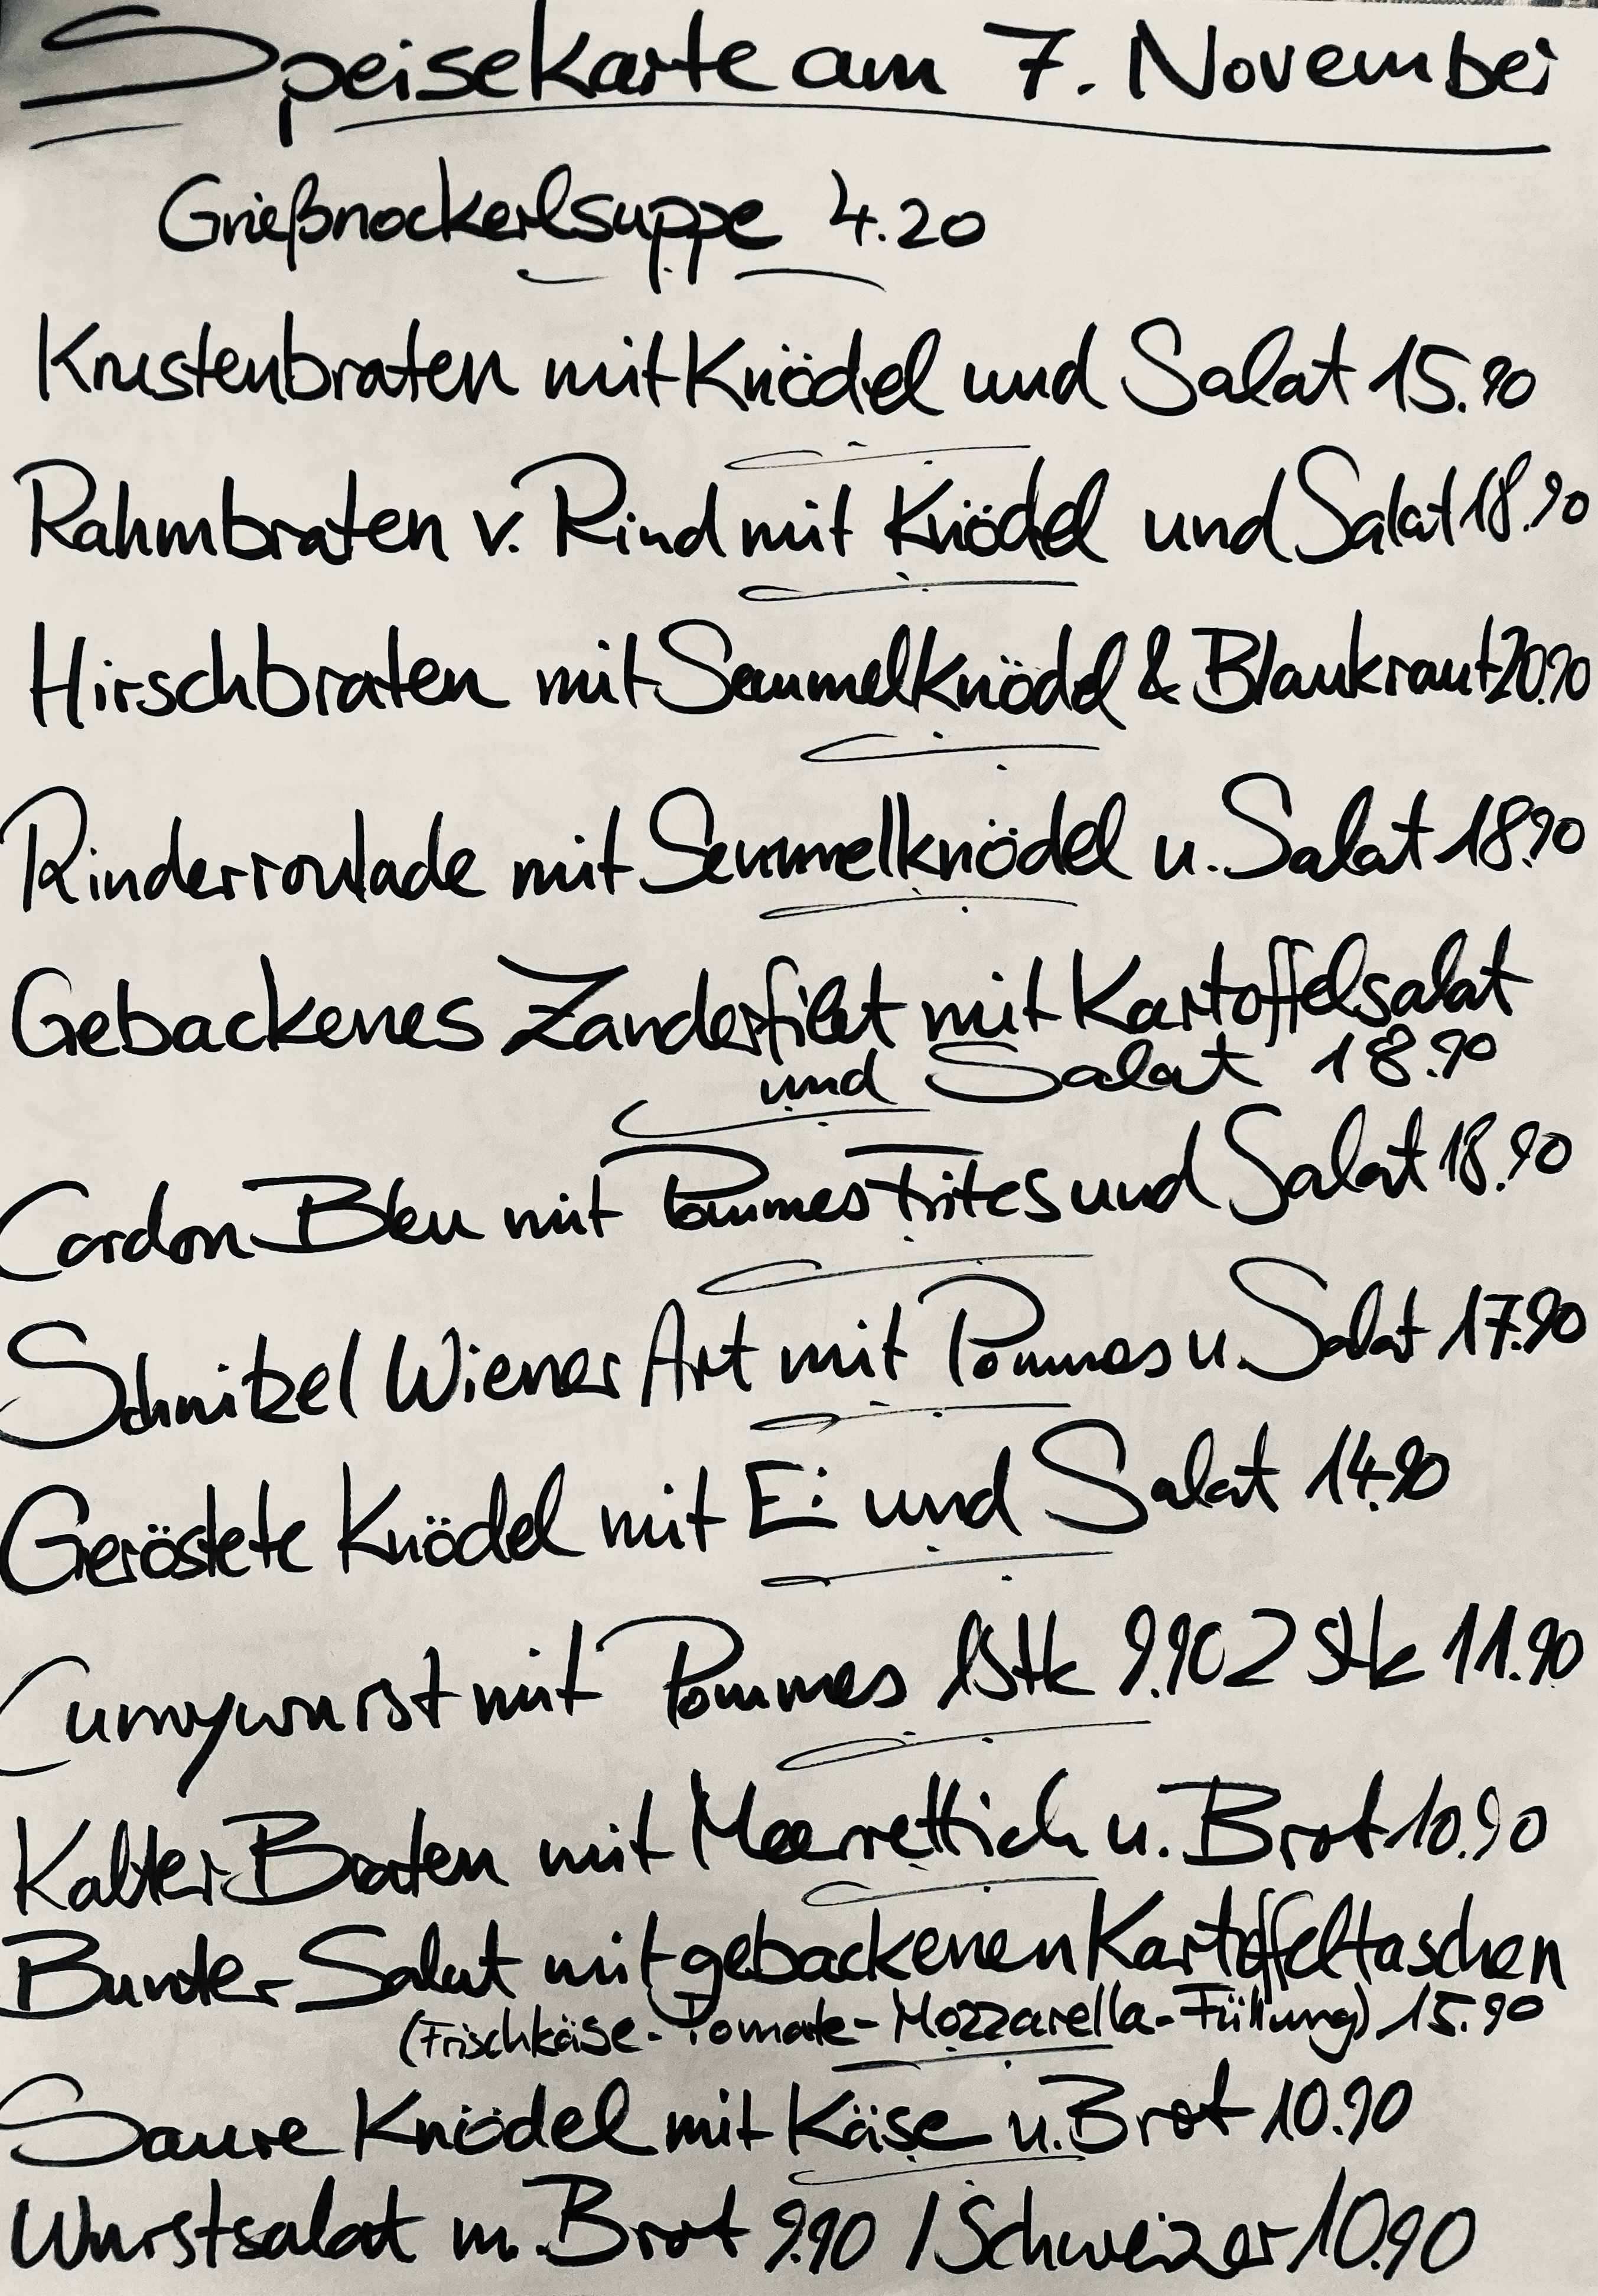 Speisekarte am 7. November
Grießnockerlsuppe 4.20
Krustenbraten mit Knödel und Salat 15.90
Rahmbraten v. Rind mit Knödel und Salat 18.90
Hirschbraten mit Semmelknödel & Blaukraut 20.90
Rinderroulade mit Semmelknödel u. Salat 18.90
Gebackenes Zanderfilet mit Kartoffelsalat
und Salat 18.90
Cordon Bleu mit Pommes Frites und Salat 18.90
Schnitzel Wiener Art mit Pommes u. Salat 17.90
Geröstete Knödel mit Ei und Salat 14.90
Currywurst mit Pommes 1Stk 9.90 2 Stk 11.90
Kalter Braten mit Meerrettich u. Brot 10.90
Bunter Salat mit gebackenen Kartoffeltaschen
(Frischkäse-Tomate-Mozzarella-Füllung) 15.90
Saure Knödel mit Käse u. Brot 10.90
Wurstsalat m. Brot 9.90 / Schweizer 10.90